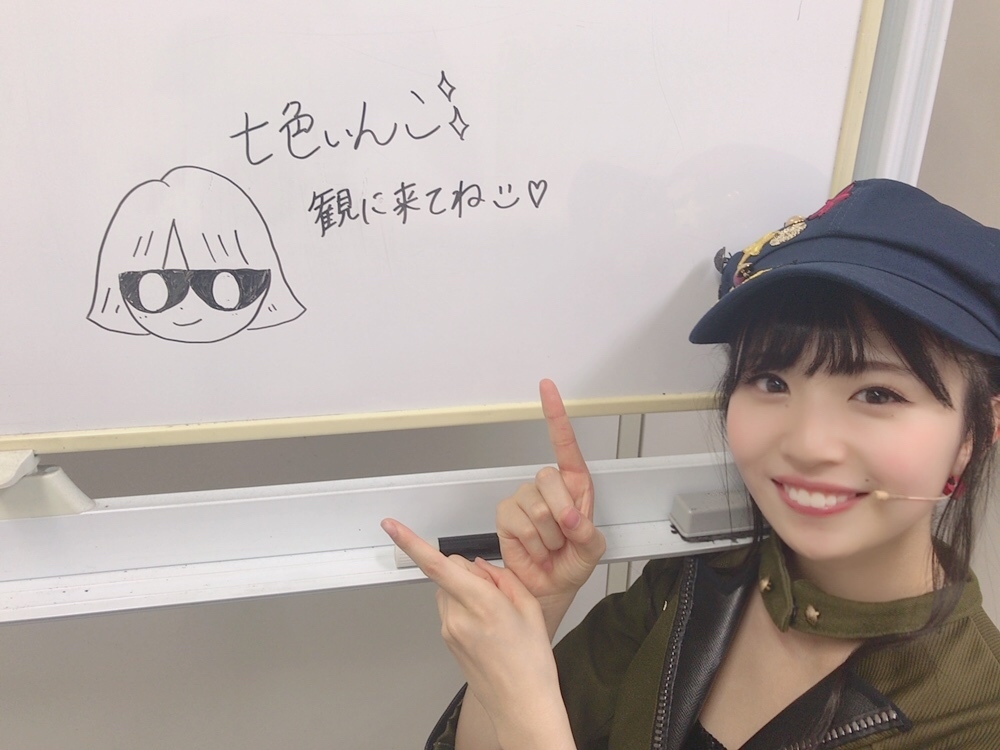 七色いんこ
観に来てね